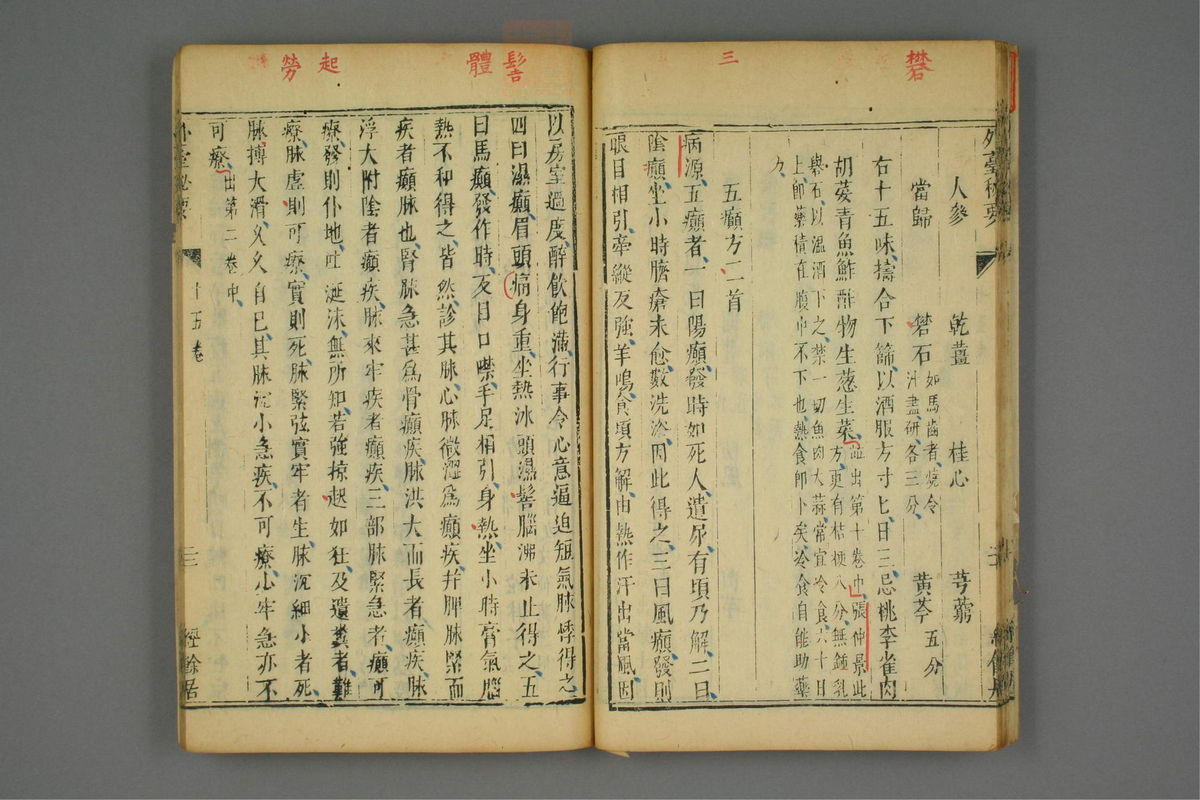 礬
三
外臺秘要
人參　乾薑　桂心　芎藭
當歸　礬石如馬齒者燒令
汁盡研各三分　黃芩五分
右十五味擣合下篩以酒服方寸匕日三忌桃李雀肉
胡荽青魚鮓酢物生葱生菜並出第十卷中張仲景此
方更有桔梗八分無鍾乳
礬石以溫酒下之禁一切魚肉大蒜常宜冷食六十日
上即藥積在腹中不下也熱食即下矣冷食自能助藥
力
五癲方二首
病源五癲者一曰陽癲發時如死人遺尿有頃乃解二曰
陰癲坐小時臍瘡未愈數洗浴因此得之三曰風癲發則
眼目相引牽縱反強羊鳴食頃方解由熱作汗出當風因
髻
體
起
勞
以房室過度醉飲飽滿行事令心意逼迫短氣脉悸得之
四曰濕癲眉頭痛身重坐熱沐頭濕髻腦沸未止得之五
曰馬癲發作時反目口噤手足相引身熱坐小時膏氣腦
熱不和得之皆然診其脉心脉微澀爲癲疾并脾脉緊而
疾者癲脉也腎脉急甚爲骨癲疾脉洪大而長者癲疾脉
浮大附陰者癲疾脉來牢疾者癲疾三部脉緊急者癲可
療發則仆地吐涎沫無所知若強掠起如狂及遺糞者難
療脉虛則可療實則死脉緊弦實牢者生脉沉細小者死
脉搏大滑久久自已其脉沉小急疾不可療小牢急亦不
可療出第二卷中
外臺秘要　十五卷　三　經餘居